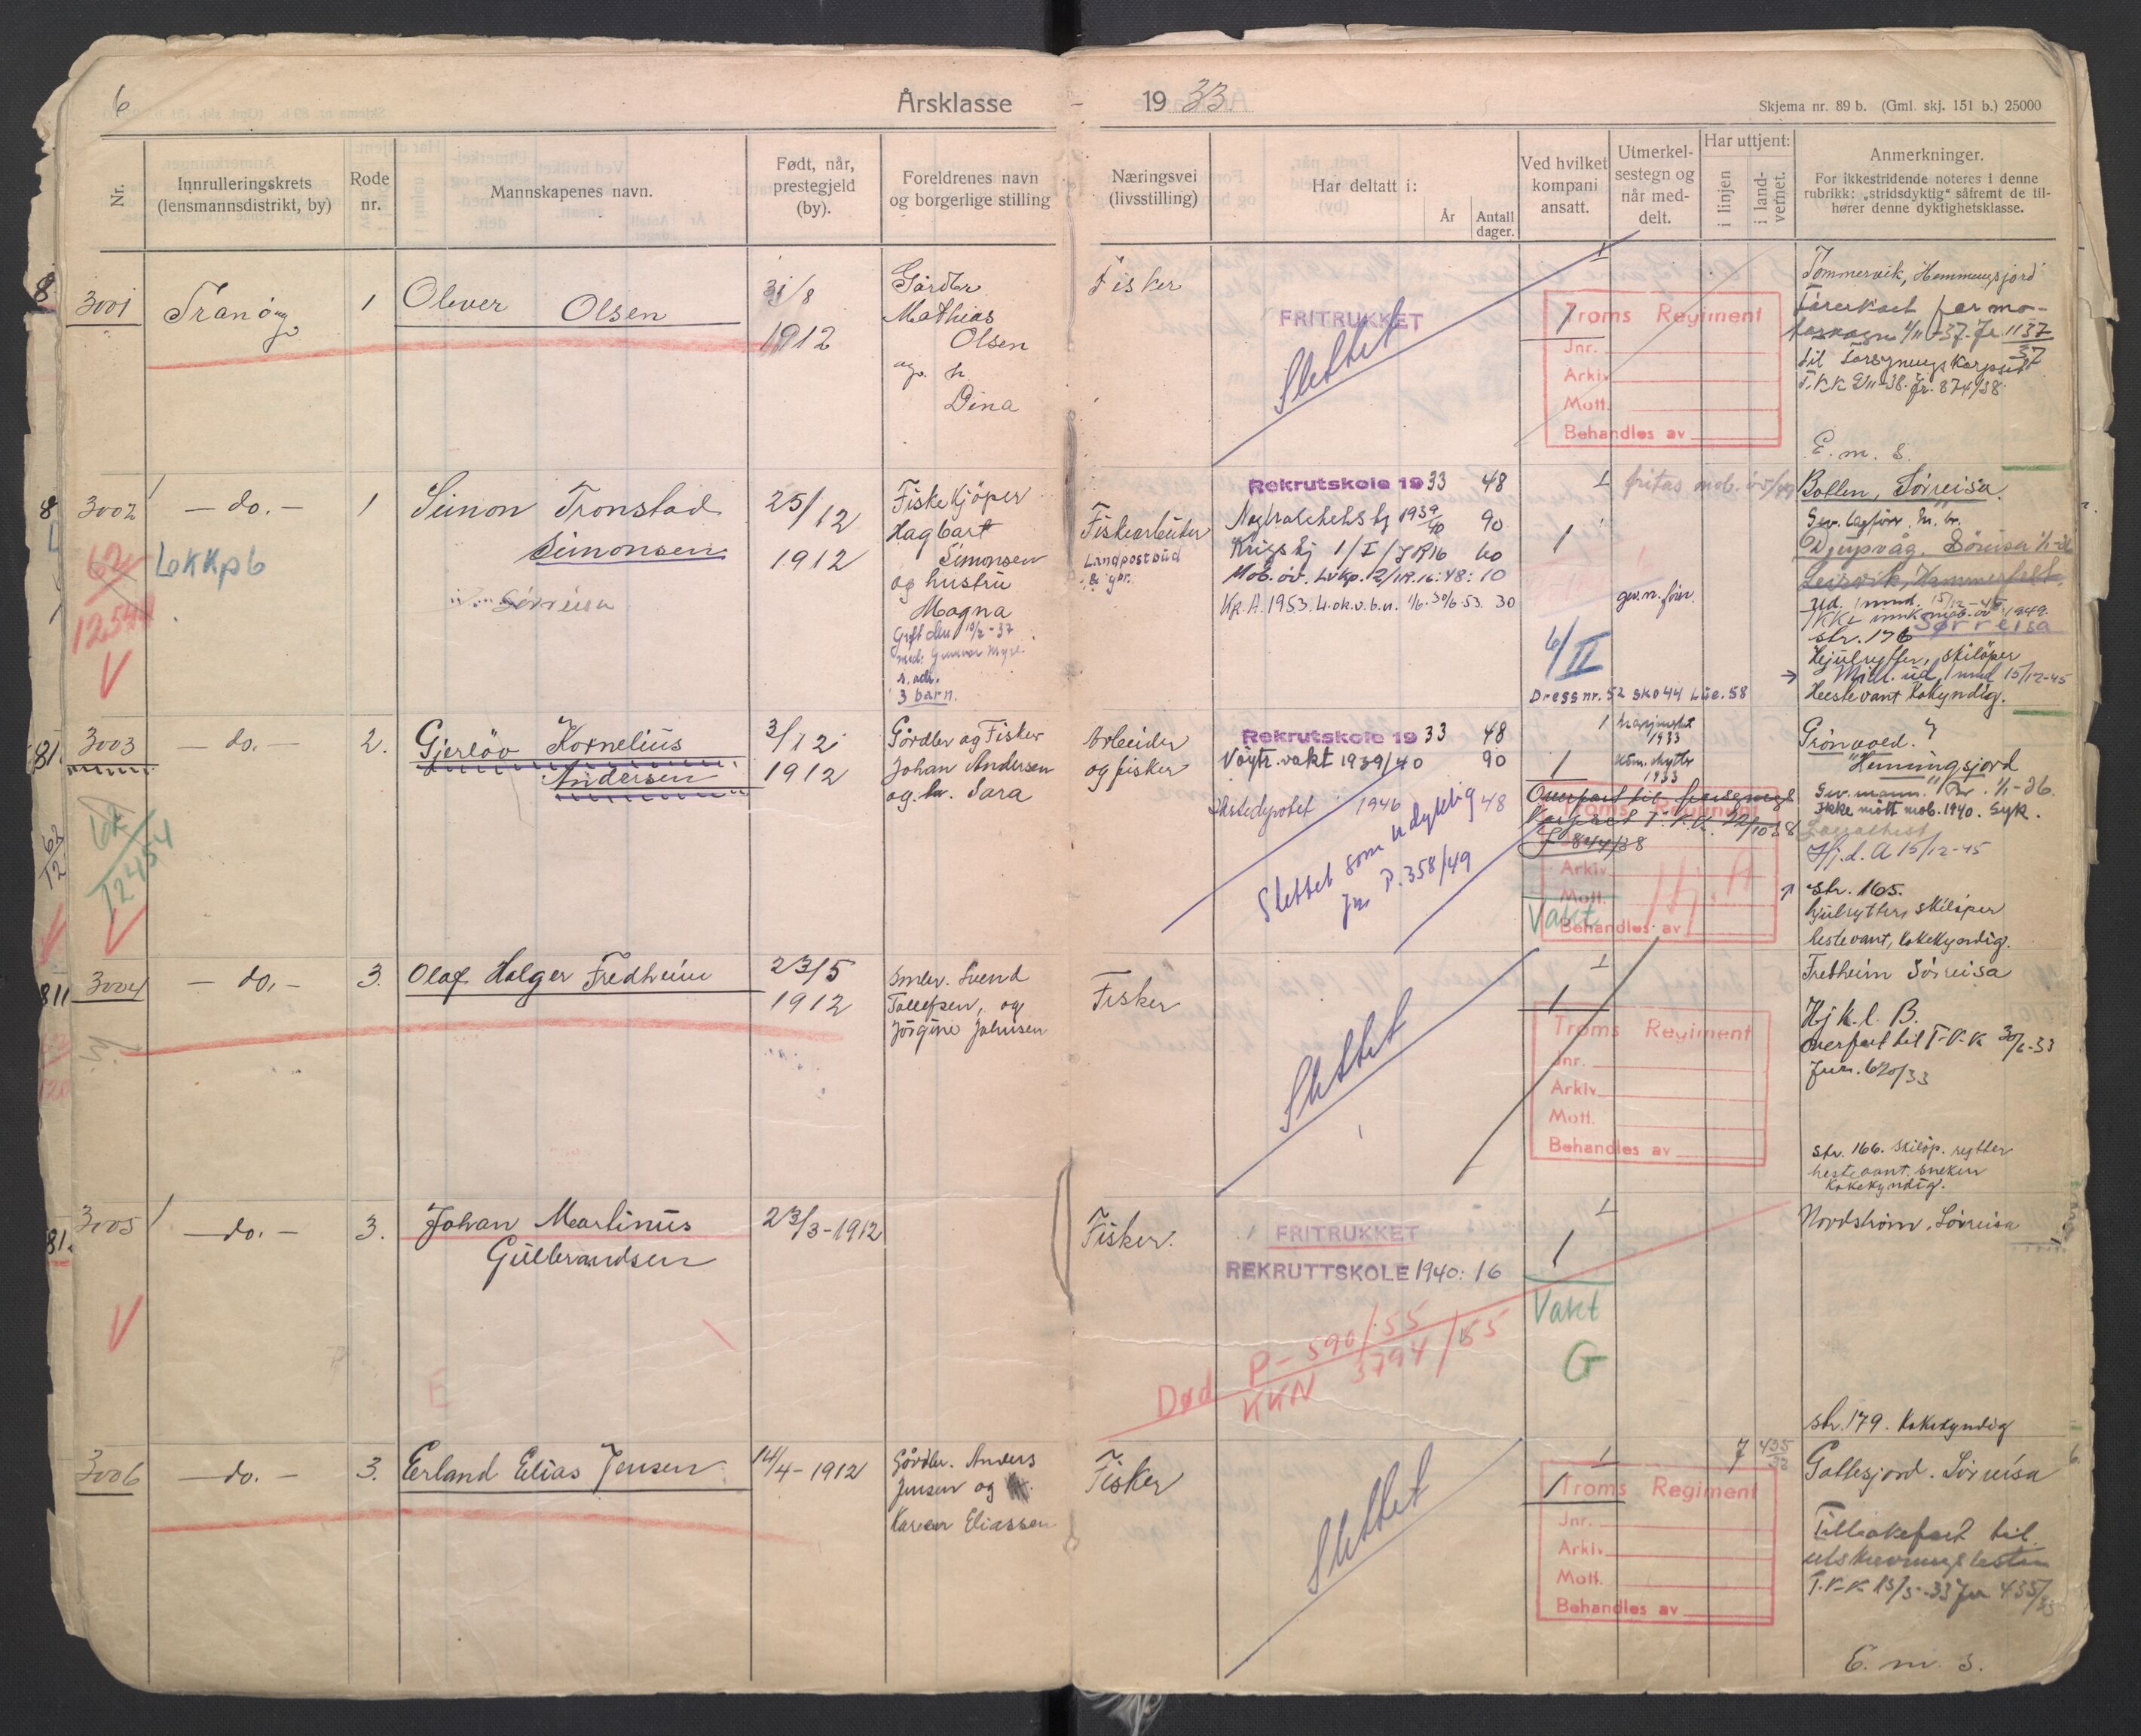 6
Årsklasse
19 33
Skjema nr. 89 b. (Gml. skj. 151 b.) 25000
Nr.
Innrulleringskrets
(lensmannsdistrikt, by)
Rode
nr.
Mannskapenes navn.
Født, når,
prestegjeld
(by).
Foreldrenes navn
og borgerlige stilling
Næringsvei
(livsstilling)
Har deltatt i:
År
Antall
dager.
Ved hvilket
kompani
ansatt.
Utmerkel-
sestegn og
når med-
delt.
Har uttjent:
i linjen
i land-
vernet.
Anmerkninger.
For ikkestridende noteres i denne
rubrikk: „stridsdyktig" såfremt de til-
hører denne dyktighetsklasse.
8
3001
Tranöy
1
Oliver Olsen
31/8
1912
Gårdbr.
Mathias
Olsen
og h.
Dina
Fisker
FRITRUKKET
Slettet
1
Troms Regiment
Jnr.
Arkiv
Mott.
Behandles av
Tömmervik, Hemmingsjord
Förerkort for mo-
torvogn 4/11-37. Jr. 1137/37
til Forsyningskorpset
T.K.K. 2/11-38. Jr. 874/38
E. m. s.
8
3002
62
12544
V
— do. —
6KKp6
1
Simon Tronstad
Simonsen
Sörreisa
25/12
1912
Fiskekjöper
Hagbart
Simonsen
og hustru
Magna
Gift den 10/2-37
med Gunvor Myre
s. adr.
3 barn.
Fiskearbeider
Landpostbud
& gbr.
Rekrutskole 1933 48
Nøytralitetstj 1939/40 90
Krigstj 1/I/IR16 60
Mob. öv. Lvkp. 2/IR.16:48: 10
Kp. A. 1953. 4. ok. v. b. n. 1/6-30/6-53. 30
1
1
6/II
fritas mob.
gev. n. förer.
Dress nr. 52 sko 44 Lue. 58
Botten, Sörreisa.
Gev. lagförer. M. br.
Djupvåg. Sörreisa 1/1-36
Leirvik, Hammerfelt
ud. 1 mnd. 15/12-45
Sørreisa
str. 176
Hjulrytter, skilöper
Midl. ud. 1 mnd 15/12-45
Hestevant kokyndig.
81.
3003
62
12454
V
— do. —
2.
Gjerlöv Kornelius
Andersen
3/12
1912
Gårdbr og Fisker
Johan Andersen
og h. Sara
Arbeider
og fisker
Rekrutskole 1933 48
Nöytr. vakt 1939/40 90
Hestedepotet 1946 48
Slettet som udyktig
Jnr P. 358/49
1
1
1933
1933
Overfört til forsynings
korpset T.K.K. 22/10 38
J 844/38
Troms Regiment
Arkiv
Mott.
Behandles av
Vakt
Hj. A
Grönvold.
Hemingsjord
Gev. mann. Br. 1/1-36.
Ikke mött mob. 1940. Syk.
Hj. d. A 15/12-45
str. 165.
hjulrytter, skilöper
hestevant, kokekyndig.
811
3004
— do. —
3.
Olaf Holger Fredheim
23/5
1912
Småbr. Svend
Tollefsen, og
Jörgine Johnsen
Fisker
Slettet
1
1
Troms Regiment
Jnr.
Arkiv
Mott.
Behandles av
Fretheim Sörreisa
Hj k. l. B.
Overfört til T-V-K 30/6-33
Jnr. 620/33
str. 166. skilöp. rytter
hestevant. snekker
kokekyndig.
81.
3005
V
— do. —
3.
Johan Martinus
Gulbrandsen
E
23/3-1912
Fisker.
FRITRUKKET
REKRUTTSKOLE 1940: 16
Død P-590/55
KKN 3794/55
1
1
Vakt
G
Nordström, Sörreisa
str. 179. kokekyndig
3006
— do. —
3.
Erland Elias Jensen
14/4-1912
Gårdbr. Anders
Jensen og
Karen Eliassen
Fisker
Slettet
1
1
7
435/33
Troms Regiment
Jnr.
Arkiv
Mott.
Behandles av
Gottesjord. Sörreisa
Tilbakefört til
utskrivningslisten
T.V.K. 13/5-33 Jnr 435/33
E. m. s.